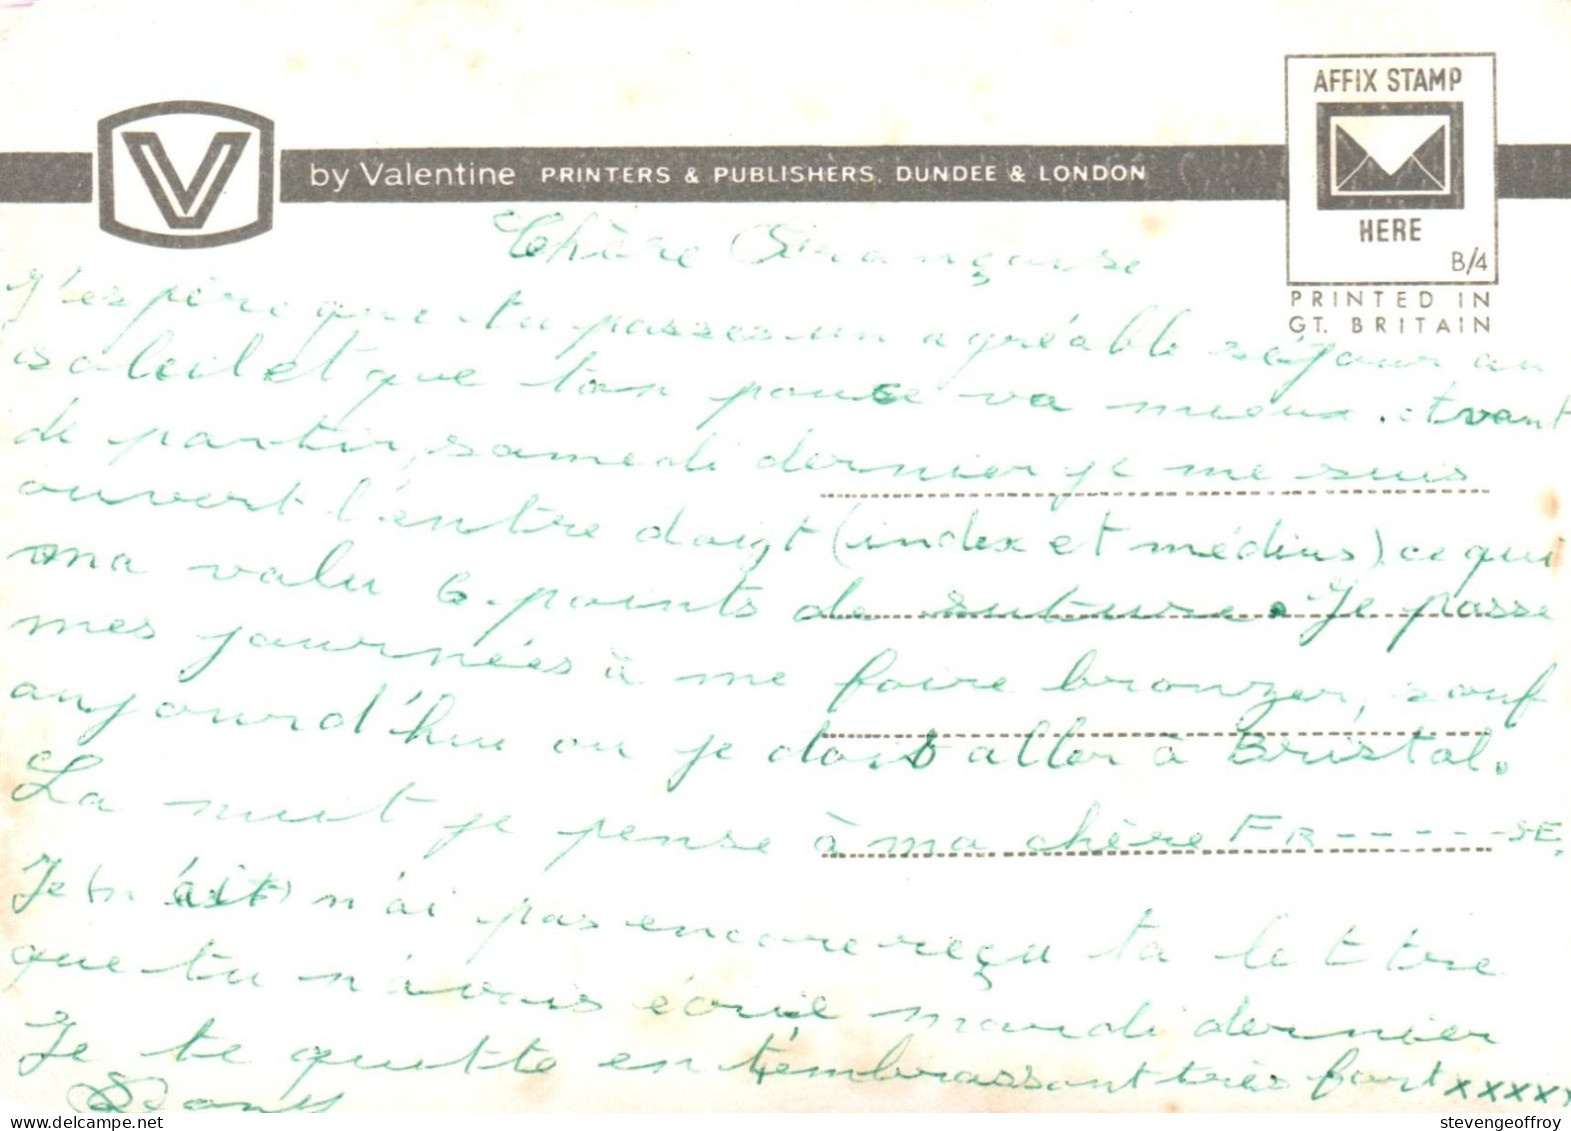 AFFIX STAMP
by Valentine PRINTERS & PUBLISHERS, DUNDEE & LONDON
HERE
B/4
PRINTED IN
GT. BRITAIN
Chère Française
J'espère que tu passes un agréable séjour au
soleil et que ton pouce va mieux. Avant
de partir, samedi dernier je me suis
ouvert l'entre doigt (index et médius) ce qui
ma valu 6 points de suture. Je passe
mes journées à me faire bronzer, sauf
aujourd'hui ou je dois aller à Bristol.
La nuit je pense à ma chère FR-----SE.
Je (n'ait) n'ai pas encore reçu ta lettre
que tu m'avais écrie mardi dernier
Je te quitte en t'embrassant très fort xxxxx
Dany
Delcampe.net
stevengeoffroy